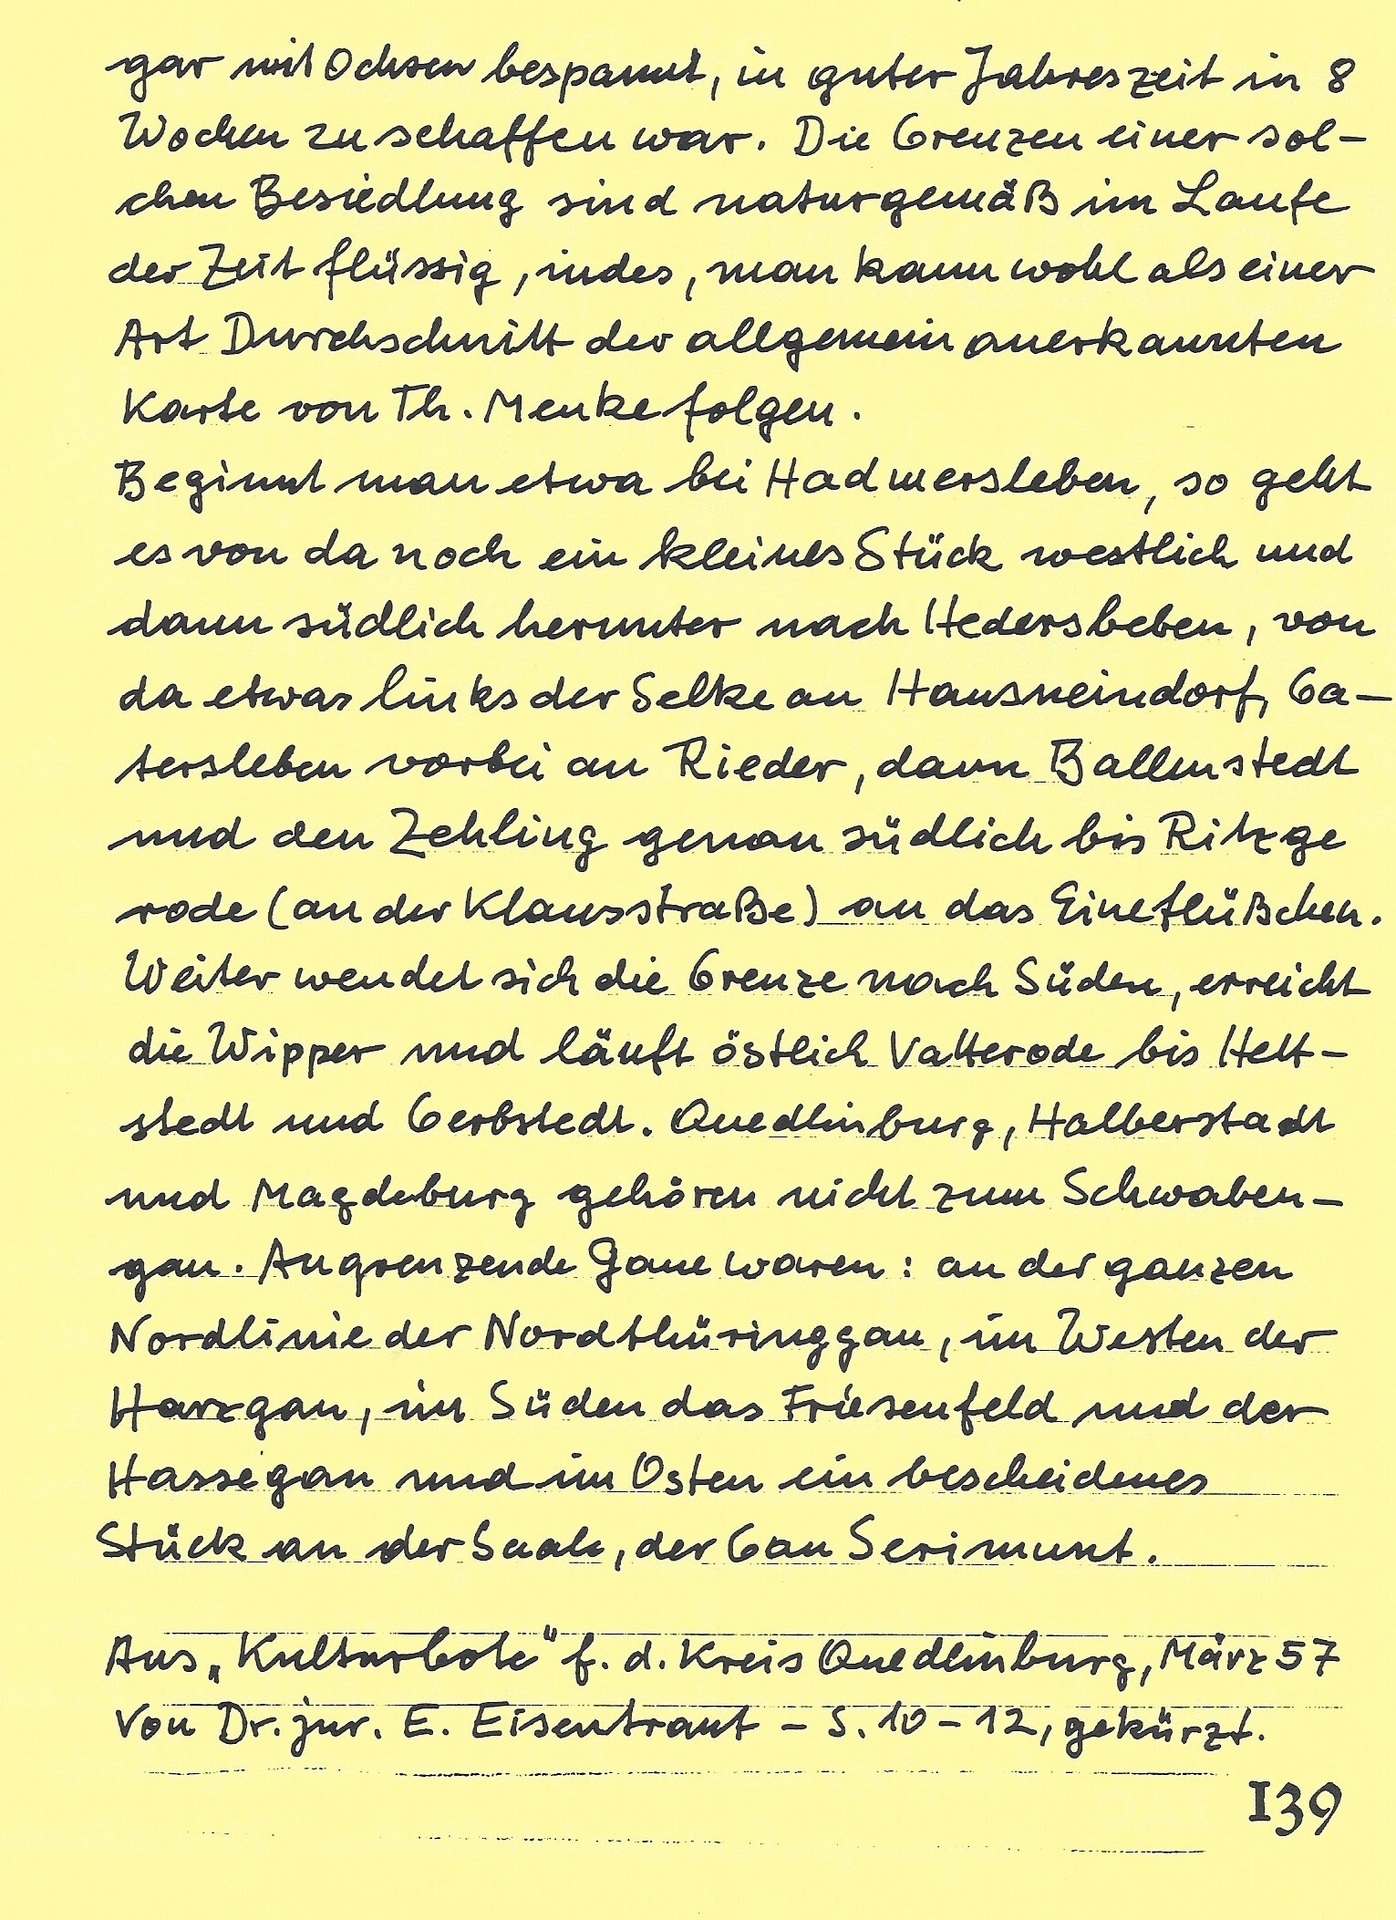 gar mit Ochsen bespannt, in guter Jahreszeit in 8
Wochen zu schaffen war. Die Grenzen einer sol-
chen Besiedlung sind naturgemäß im Laufe
der Zeit flüssig, indes, man kann wohl als einer
Art Durchschnitt der allgemein anerkannten
Karte von Th. Menke folgen.
Beginnt man etwa bei Hadmersleben, so geht
es von da noch ein kleines Stück westlich und
dann südlich herunter nach Hedersleben, von
da etwas links der Selke an Hausneindorf, Ga-
tersleben vorbei an Rieder, dann Ballenstedt
und den Zehling genau südlich bis Ritzge
rode (an der Klausstraße) an das Eineflüßchen.
Weiter wendet sich die Grenze nach Süden, erreicht
die Wipper und läuft östlich Vatterode bis Hett-
stedt und Gerbstedt. Quedlinburg, Halberstadt
und Magdeburg gehören nicht zum Schwaben-
gau. Angrenzende Gaue waren: an der ganzen
Nordlinie der Nordthüringgau, im Westen der
Harzgau, im Süden das Friesenfeld und der
Hassegau und im Osten ein bescheidenes
Stück an der Saale, der Gau Serimunt.
Aus „Kulturbote" f. d. Kreis Quedlinburg, März 57
Von Dr. jur. E. Eisentraut – S. 10 – 12, gekürzt.
139